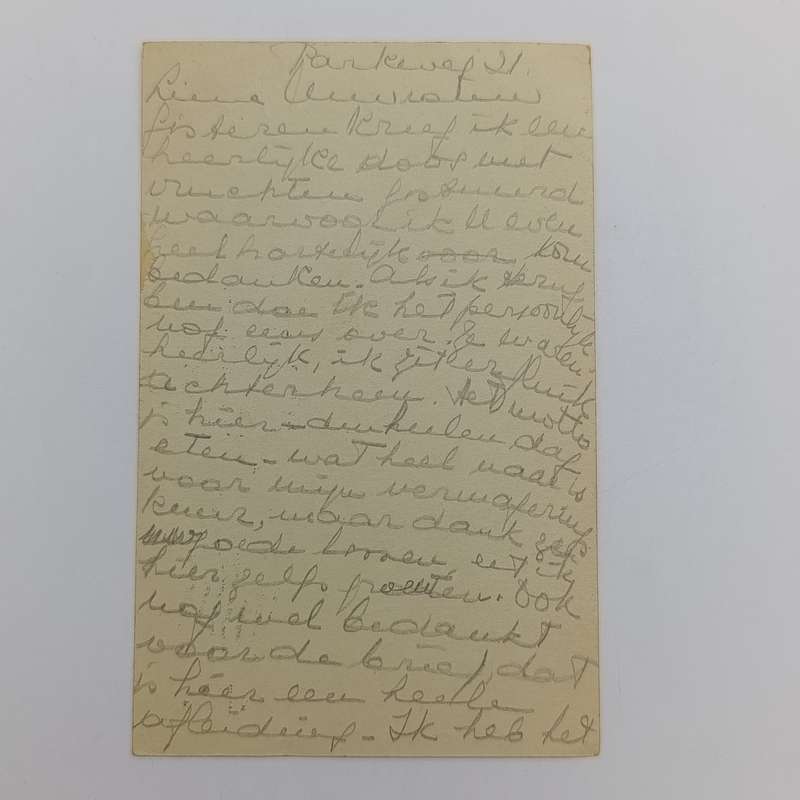 Parkweg 21.
Lieve
Gisteren kreeg ik een
heerlijke doos met
vruchten gestuurd
waarvoor ik U even
heel hartelijk voor kom
bedanken. Als ik terug
ben doe ik het persoonlijk
nog eens over. Ze waren
heerlijk, ik zit er flink
achterheen. Het motto
is hier - den heelen dag
eten - wat heel naar is
voor mijn vermagering
kuur, maar dank zij
goede eet ik
hier zelfs groenten. Ook
nog wel bedankt
voor de brief, dat
is hier een heele
afleiding - Ik heb het